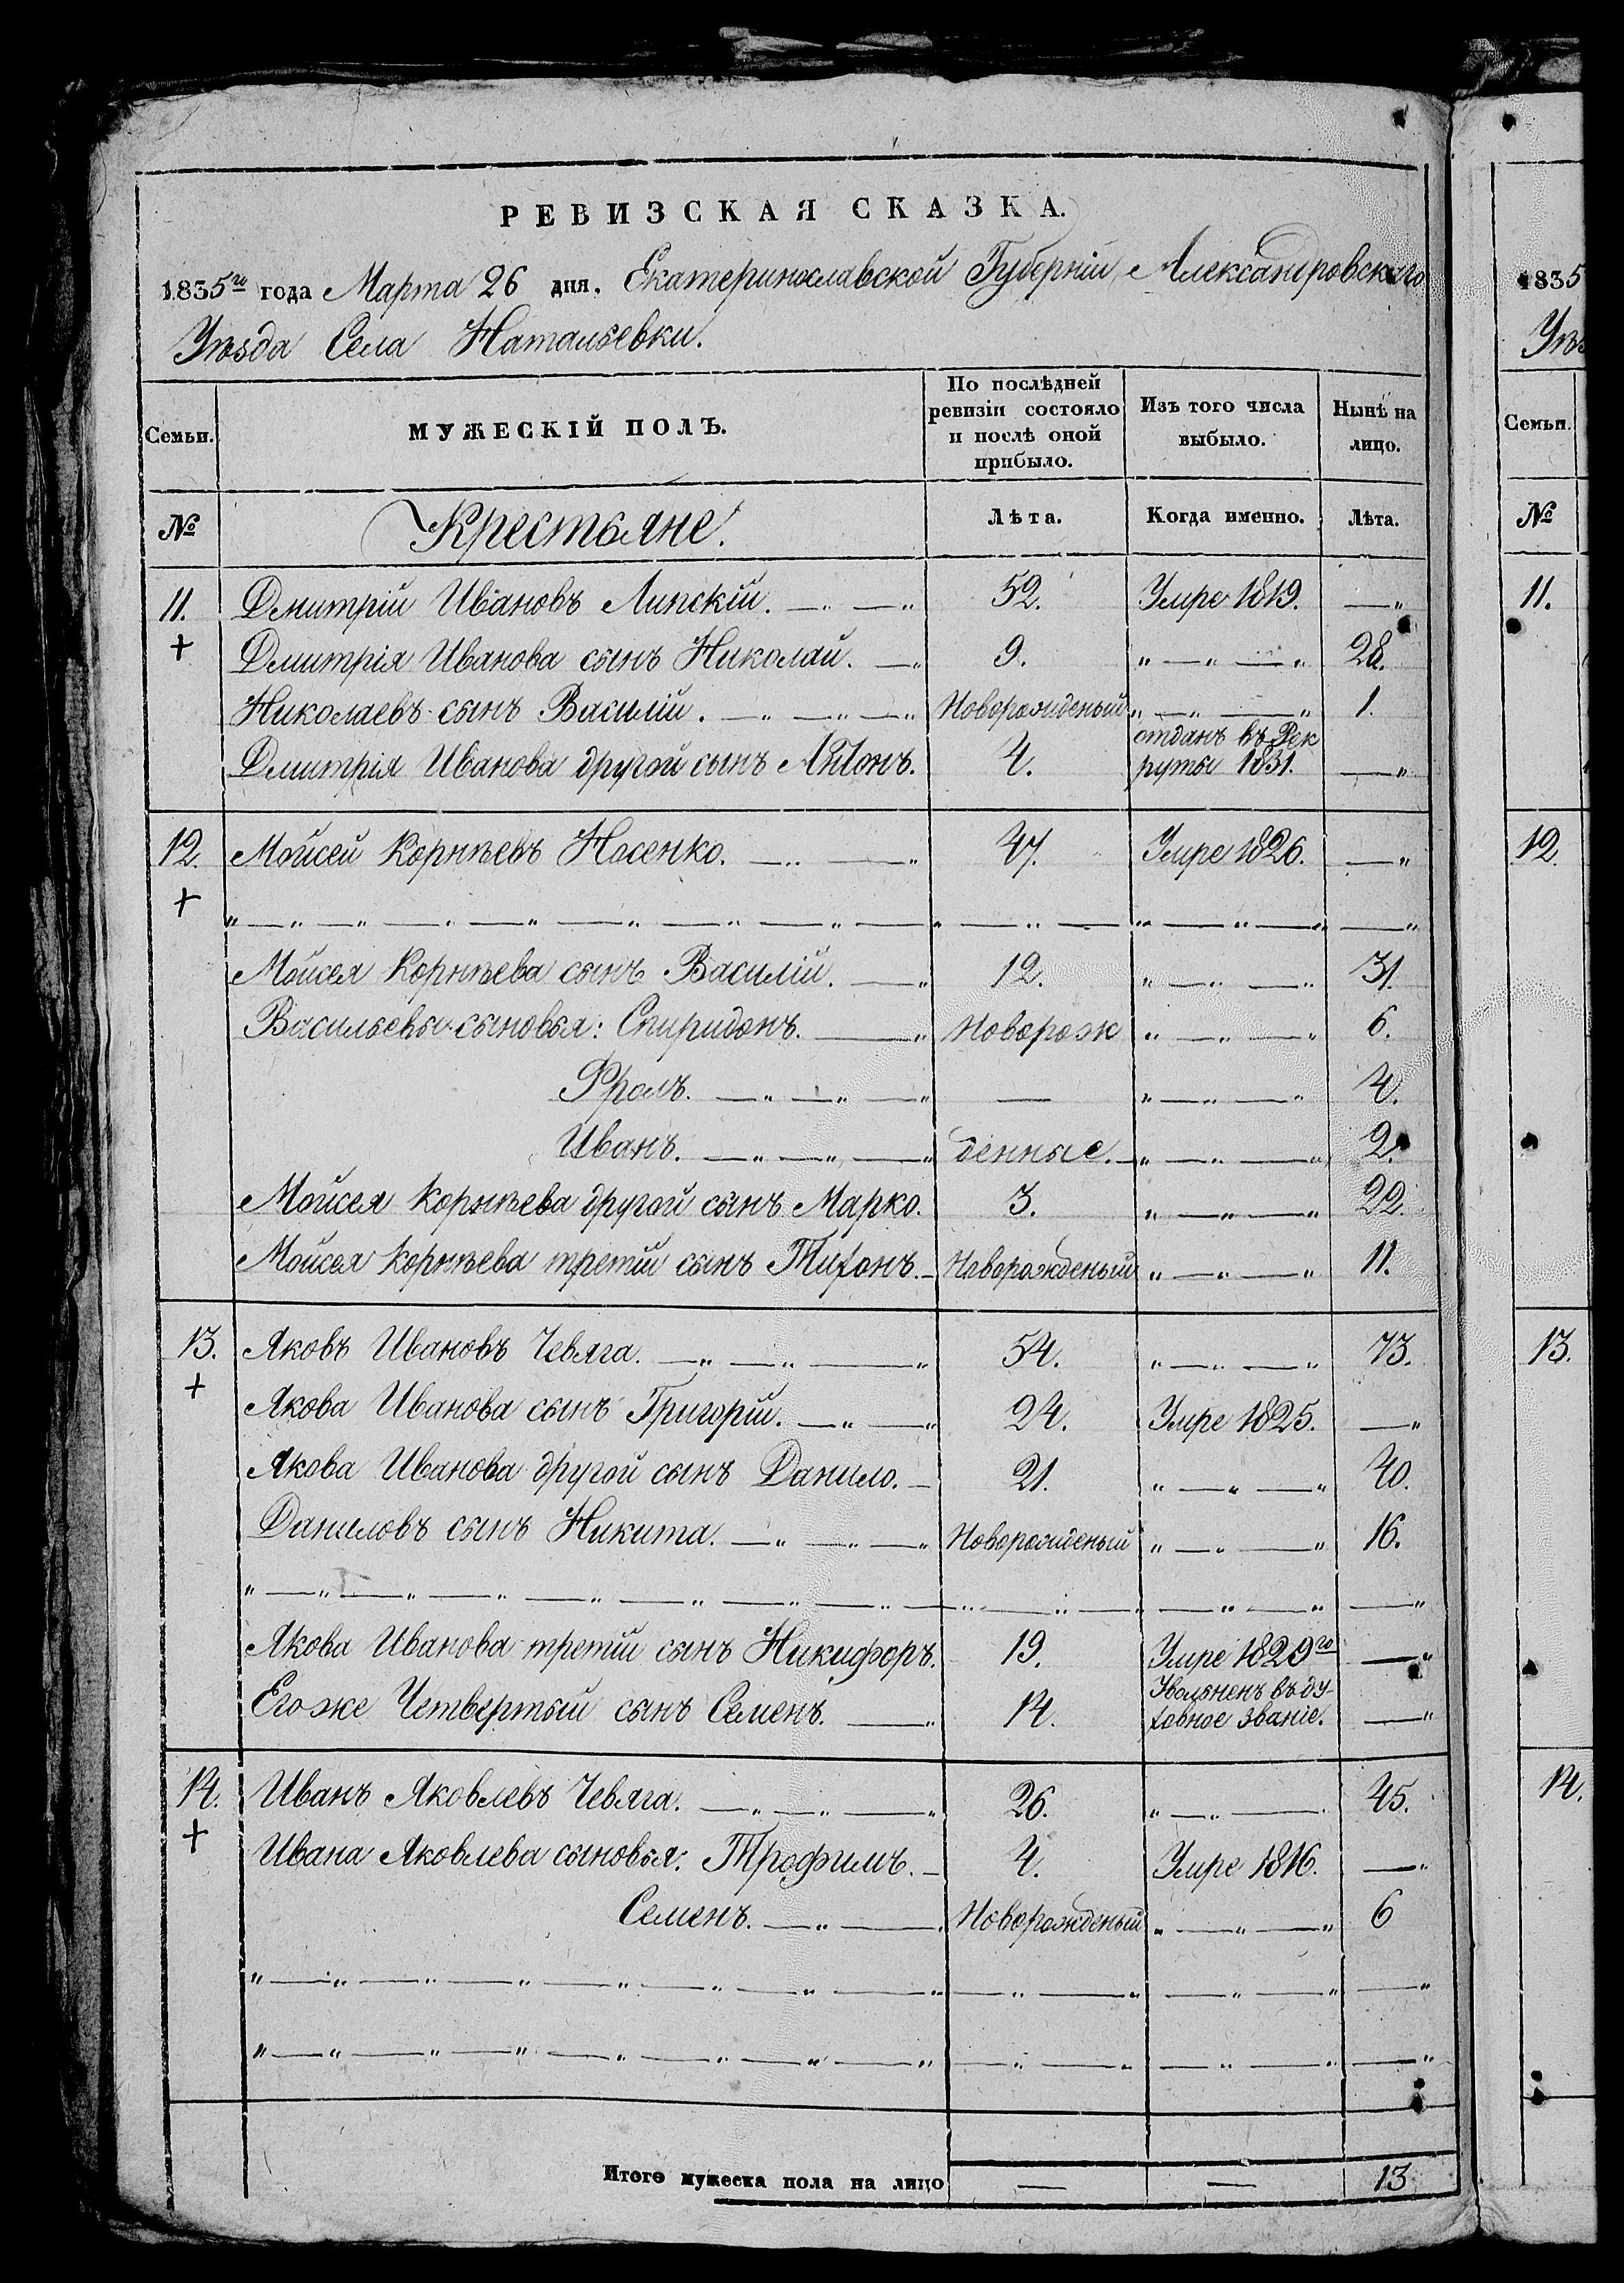 РЕВИЗСКАЯ СКАЗКА.
1835го года Марта 26 дня. Екатеринославской Губерніи, Александровскаго
Уѣзда Села Натальевки.
Семьи. МУЖЕСКІЙ ПОЛЪ. По послѣдней ревизіи состояло и послѣ оной прибыло. Изъ того числа выбыло. Нынѣ на лицо.
№ Крестьяне. Лѣта. Когда именно. Лѣта.
11. Дмитрій Ивановъ Липскій. — „ — „ 52. Умре 1819. — „
+ Дмитрія Иванова сынъ Николай. — „ 9. „ — „ — „ 28.
Николаевъ сынъ Василій. — „ — „ — „ Новорожденый „ — „ — „ 1.
Дмитрія Иванова другой сынъ Антонъ. 4. отданъ въ Рек
руты 1831. — „
12. Мойсей Корнѣевъ Носенко. — „ — „ 47. Умре 1826. — „
+ „ — „ — „ — „ — „ — „ — „ — „ — „ — „ — „ — „ — „ — „
Мойсея Корнѣева сынъ Василій. — „ 12. „ — „ — „ 31.
Васильевы сыновья: Спиридонъ. — „ Новорож „ — „ — „ 6.
Фролъ. — „ — „ — „ — „ — „ — „ 4.
Иванъ. — „ — „ — „ денные. — „ — „ — „ 2.
Мойсея Корнѣева другой сынъ Марко. 3. „ — „ — „ 22.
Мойсея Корнѣева третій сынъ Тихонъ. — Новорожденый „ — „ — „ 11.
13. Яковъ Ивановъ Чевяга. — „ — „ — „ 54. „ — „ — „ 73.
+ Якова Иванова сынъ Григорій. — „ — „ 24. Умре 1825. — „
Якова Иванова другой сынъ Данило. — 21. „ — „ — „ 40.
Даниловъ сынъ Никита. — „ — „ — „ Новорожденый „ — „ — „ 16.
„ — „ — „ — „ — „ — „ — „ — „ — „ — „ — „ — „ — „ — „
Якова Иванова третій сынъ Никифоръ. 19. Умре 1829го — „
Его же Четвертый сынъ Семенъ. — „ 14. Уволненъ въ ду-
ховное званіе. — „
14. Иванъ Яковлевъ Чевяга. — „ — „ — „ 26. „ — „ — 45.
+ Ивана Яковлева сыновья: Трофимъ. — 4. Умре 1816. — „
Семенъ. — „ — „ Новорожденый „ — „ — „ 6
„ — „ — „ — „ — „ — „ — „ — „ — „ — „ — „ — „ — „
„ — „ — „ — „ — „ — „ — „ — „ — „ — „ — „ — „ — „
Итого мужеска пола на лицо — — 13
1835
Уѣз
Семьи.
№
11.
12.
13.
14.